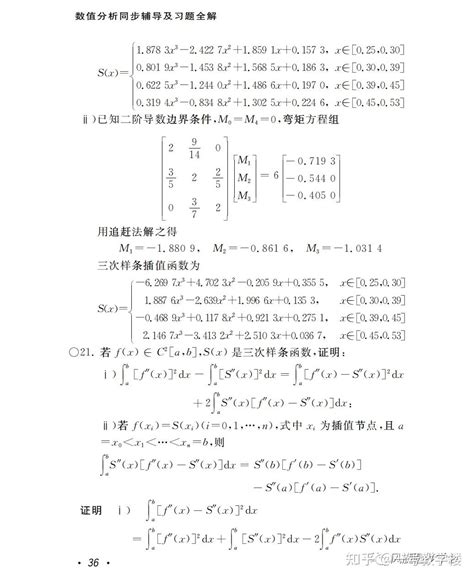 数值分析同步辅导及习题全解
S(x)={1.878 3x³−2.422 7x²+1.859 1x+0.157 3, x∈[0.25,0.30]
0.801 9x³−1.453 8x²+1.568 5x+0.186 3, x∈[0.30,0.39]
0.622 5x³−1.244 0x²+1.486 6x+0.197 0, x∈[0.39,0.45]
0.319 4x³−0.834 8x²+1.302 5x+0.224 6, x∈[0.45,0.53]
ⅱ)已知二阶导数边界条件,M₀=M₄=0,弯矩方程组
[2 9/14 0
3/5 2 2/5
0 3/7 2] [M₁ M₂ M₃] = 6 [−0.719 3 −0.544 0 −0.405 0]
用追赶法解之得
M₁=−1.880 9, M₂=−0.861 6, M₃=−1.031 4
三次样条插值函数为
S(x)={−6.269 7x³+4.702 3x²−0.205 9x+0.355 5, x∈[0.25,0.30]
1.887 6x³−2.639x²+1.996 6x+0.135 3, x∈[0.30,0.39]
−0.468 9x³+0.117 8x²+0.921 3x+0.275 1, x∈[0.39,0.45]
2.146 7x³−3.413 2x²+2.510 3x+0.036 7, x∈[0.45,0.53]
○21. 若 f(x)∈C²[a,b],S(x) 是三次样条函数,证明:
ⅰ)∫ₐᵇ[f″(x)]²dx−∫ₐᵇ[S″(x)]²dx=∫ₐᵇ[f″(x)−S″(x)]²dx
+2∫ₐᵇS″(x)[f″(x)−S″(x)]dx;
ⅱ)若 f(xᵢ)=S(xᵢ)(i=0,1,⋯,n),式中 xᵢ 为插值节点,且 a
=x₀<x₁<⋯<xₙ=b,则
∫ₐᵇS″(x)[f″(x)−S″(x)]dx=S″(b)[f′(b)−S′(b)]
−S″(a)[f′(a)−S′(a)].
证明 ⅰ) ∫ₐᵇ[f″(x)−S″(x)]²dx
=∫ₐᵇ[f″(x)]²dx+∫ₐᵇ[S″(x)]²dx−2∫ₐᵇf″(x)S″(x)dx
· 36 ·
知乎